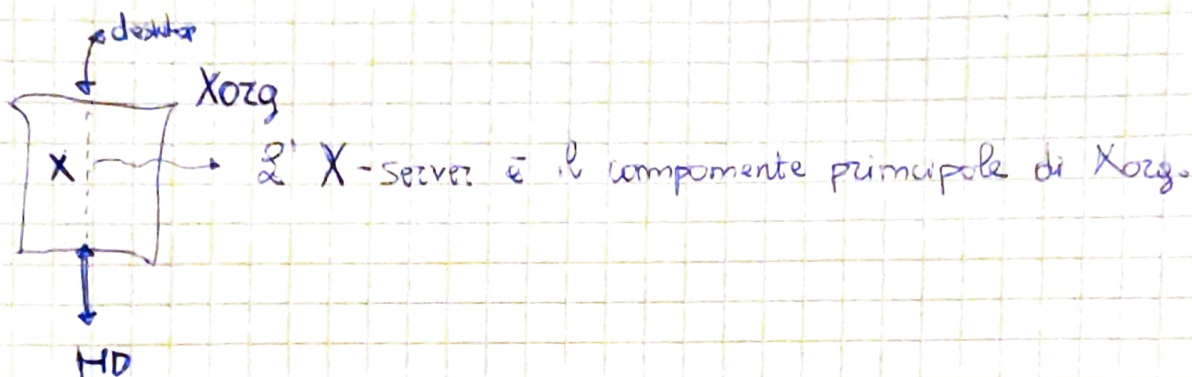 desktop
Xorg
X
L' X-server è il componente principale di Xorg.
HD